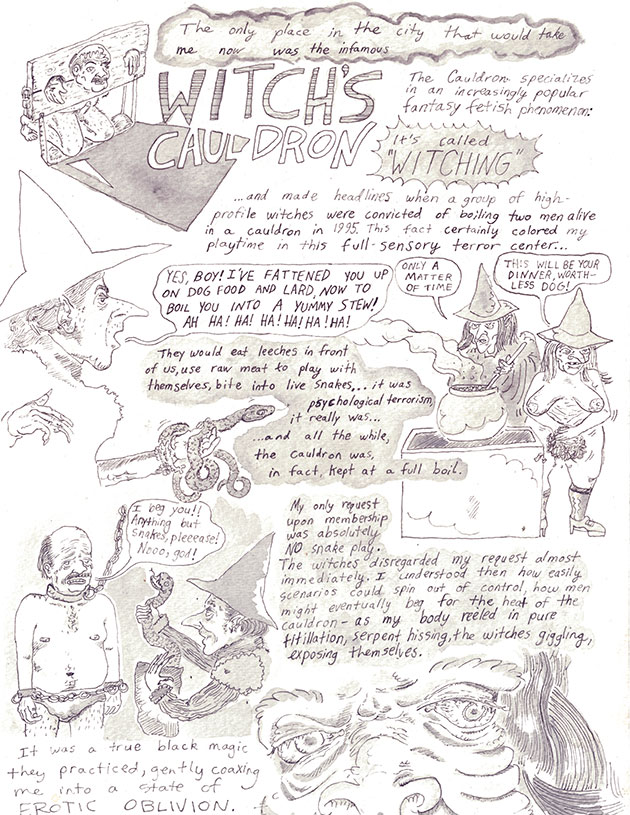 The only place in the city that would take
me now was the infamous
WITCH'S
CAULDRON
The Cauldron specializes
in an increasingly popular
fantasy fetish phenomenon:
It's called
"WITCHING"
...and made headlines when a group of high-
profile witches were convicted of boiling two men alive
in a cauldron in 1995. This fact certainly colored my
playtime in this full-sensory terror center...
YES, BOY! I'VE FATTENED YOU UP
ON DOG FOOD AND LARD, NOW TO
BOIL YOU INTO A YUMMY STEW!
AH HA! HA! HA! HA! HA! HA!
ONLY A
MATTER
OF TIME
THIS WILL BE YOUR
DINNER, WORTH-
LESS DOG!
They would eat leeches in front
of us, use raw meat to play with
themselves, bite into live snakes,... it was
psychological terrorism,
it really was...
...and all the while,
the cauldron was,
in fact, kept at a full boil.
I beg you!!
Anything but
snakes, pleeease!
Nooo, god!
My only request
upon membership
was absolutely
NO snake play.
The witches disregarded my request almost
immediately. I understood then how easily
scenarios could spin out of control, how men
might eventually beg for the heat of the
cauldron - as my body reeled in pure
titillation, serpent hissing, the witches giggling,
exposing themselves.
It was a true black magic
they practiced, gently coaxing
me into a state of
EROTIC OBLIVION.